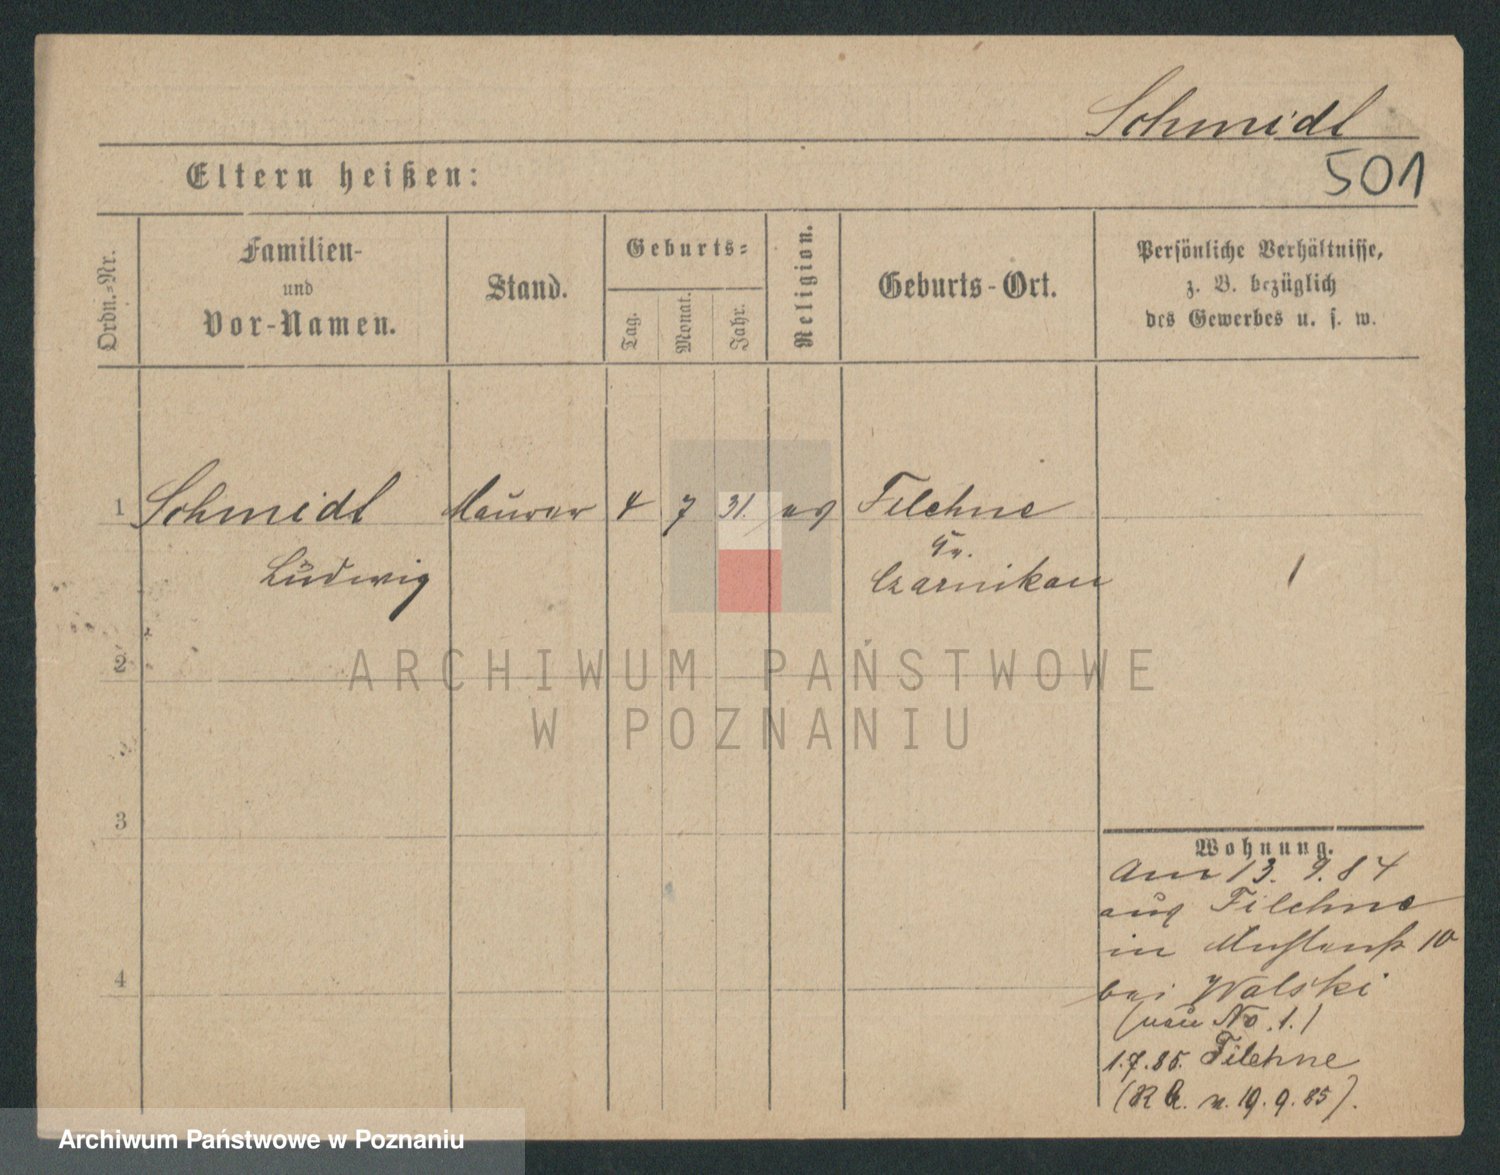 Schmidt
Eltern heißen:
501
Ordn.-Nr.
Familien-
und
Vor-Namen.
Stand.
Geburts-
Tag.
Monat.
Jahr.
Religion.
Geburts-Ort.
Persönliche Verhältnisse,
z. B. bezüglich
des Gewerbes u. s. w.
1 Schmidt Maurer 4 7 31. ev Filehne
Kr.
Ludwig Czarnikau
2
3
4
Wohnung.
Am 13. 9. 84
aus Filehne
in 10
bei Walski
(neu No. 1.)
1.7.85. Filehne
(R v. 19. 9. 85).
ARCHIWUM PAŃSTWOWE
W POZNANIU
Archiwum Państwowe w Poznaniu